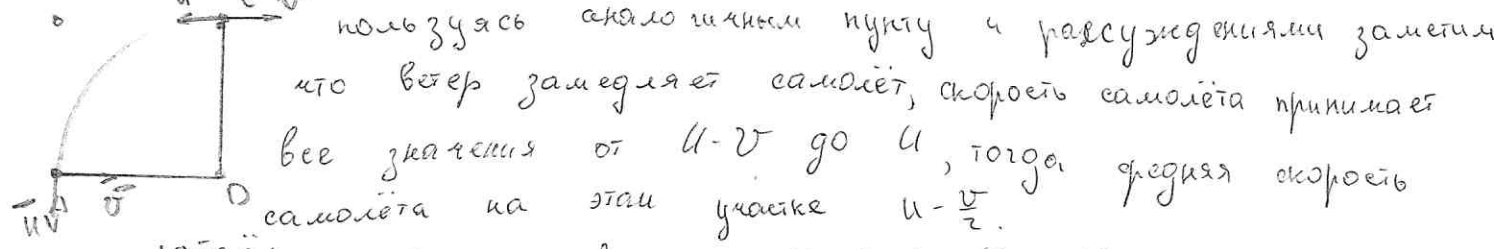 пользуясь аналогичным пункту 4 рассуждениями заметим
что ветер замедляет самолёт, скорость самолёта принимает
все значения от U-V до U, тогда средняя скорость
самолёта на этом участке u - v/2.
V D